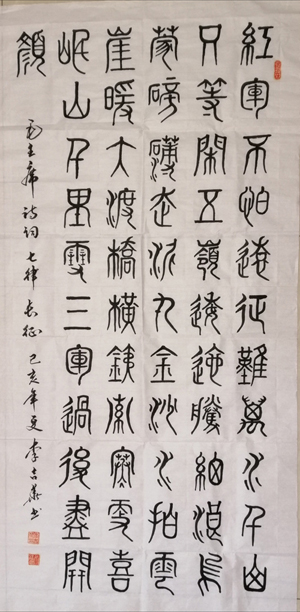 紅軍不怕遠征難萬水千山
只等閑五嶺逶迤騰細浪烏
蒙磅礴走泥丸金沙水拍雲
崖暖大渡橋橫鐵索寒更喜
岷山千里雪三軍過後盡開
顏
毛主席诗词七律長征己亥年夏李吉书